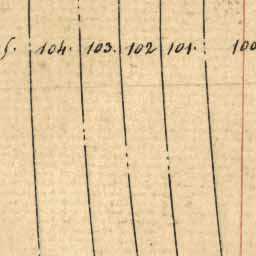 104. 103. 102 101. 100